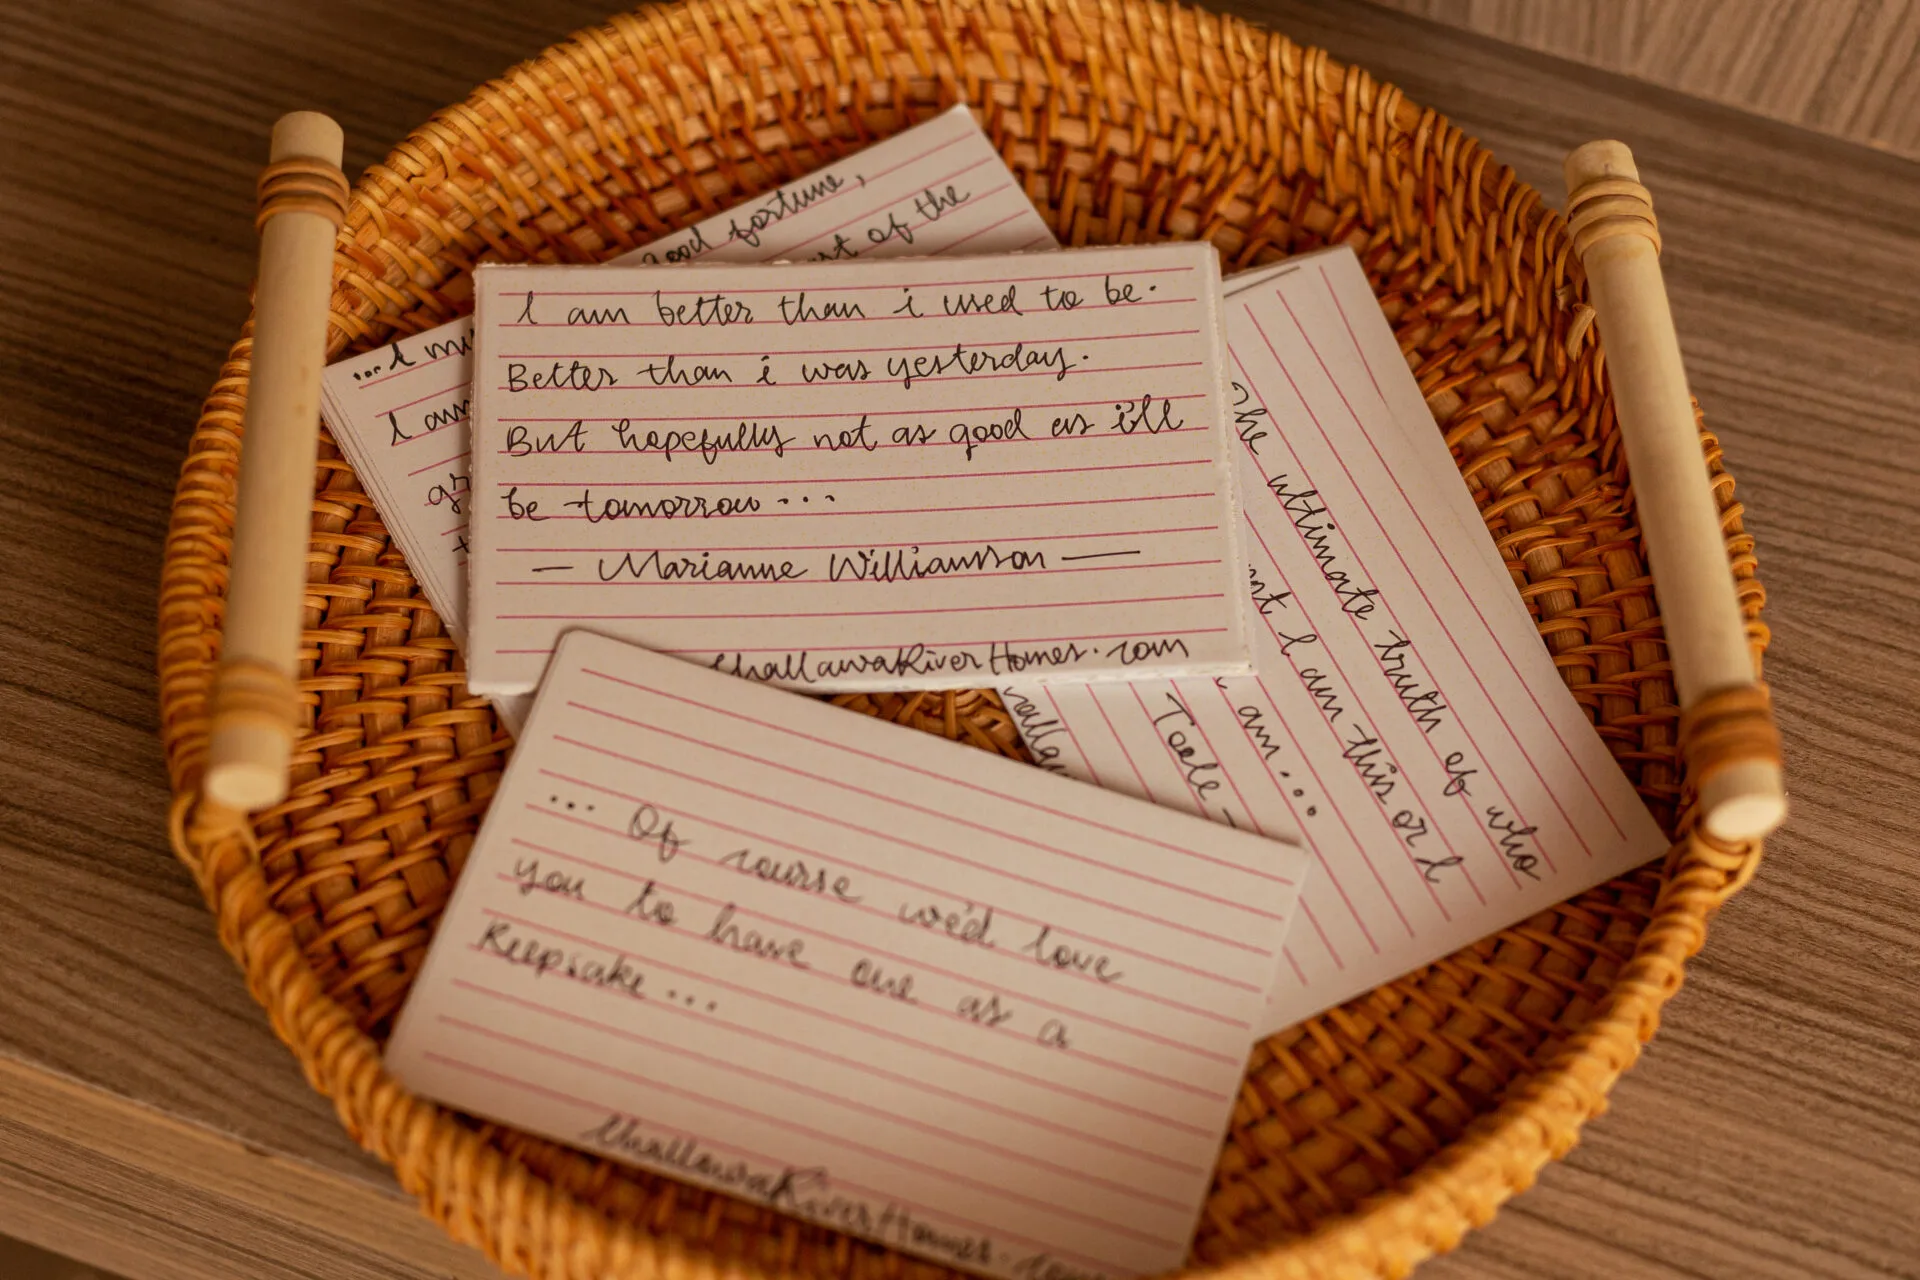 good fortune,
of the
... I
I am
I am better than i used to be.
Better than i was yesterday.
But hopefully not as good as i'll
be tomorrow...
— Marianne Williamson —
ChallawaRiverHomes.com
The ultimate truth of who
I am this or I
am...
Tolle -
... Of course we'd love
you to have one as a
Keepsake...
ChallawaRiverHomes.com